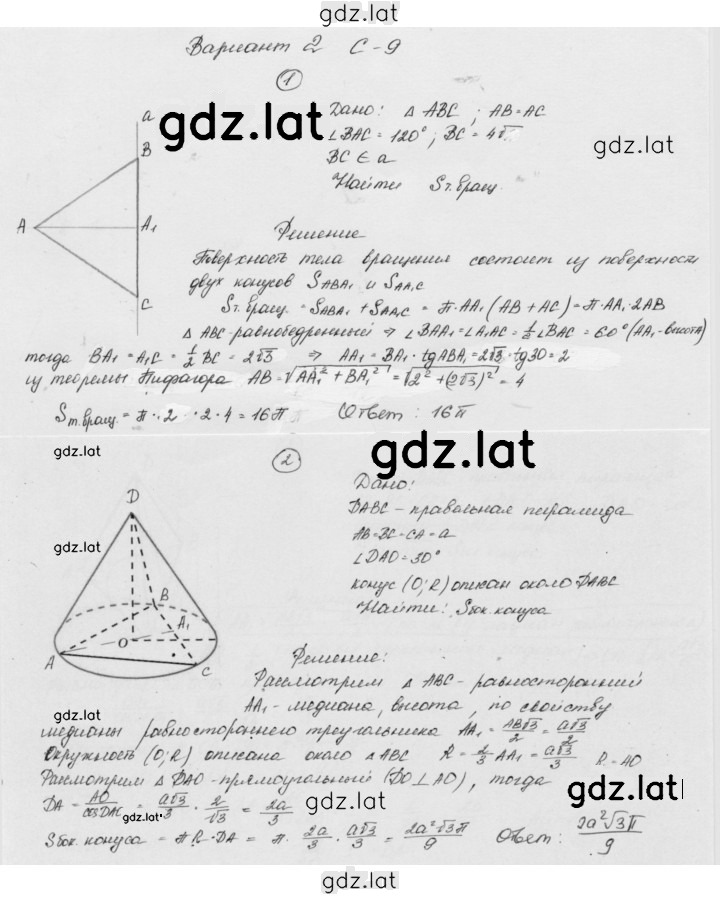 gdz.lat
Вариант 2 С-9
1
gdz.lat
Дано: Δ ABC ; AB=AC
∠BAC = 120°; BC = 4√
BC ∈ a
Найти Sт.вращ.
gdz.lat
a
B
A
A₁
C
Решение
Поверхность тела вращения состоит из поверхности
двух конусов S_ABA₁ и S_AA₁C
Sт.вращ. = S_ABA₁ + S_AA₁C = π·AA₁(AB + AC) = π·AA₁·2AB
Δ ABC-равнобедренный ⇒ ∠BAA₁=∠A₁AC = ½∠BAC = 60° (AA₁-высота)
тогда BA₁ = A₁C = ½ BC = 2√3 ⇒ AA₁ = BA₁·tgABA₁=2√3·tg30=2
из теоремы Пифагора AB=√AA₁² + BA₁² = √2² + (2√3)² = 4
Sт.вращ. = π·2·2·4 = 16π Ответ: 16π
gdz.lat
2
gdz.lat
Дано:
DABC - правильная пирамида
AB=BC=CA=a
∠DAO=30°
конус (O;R) описан около DABC
Найти: Sбок. конуса
D
gdz.lat
B
A₁
O
A
C
Решение:
Рассмотрим Δ ABC - равносторонний
AA₁ - медиана, высота, по свойству
gdz.lat
медианы равностороннего треугольника AA₁ = AB√3/2 = a√3/2
Окружность (O;R) описана около ΔABC R = 2/3 AA₁ = a√3/3 R=AO
Рассмотрим Δ DAO-прямоугольный (DO⊥AO), тогда
DA = AO/cosDAC = a√3/3 · 2/√3 = 2a/3
gdz.lat
gdz.lat
Sбок. конуса = πR·DA = π · 2a/3 · a√3/3 = 2a²√3π/9 Ответ: 2a²√3π/9
gdz.lat
gdz.lat